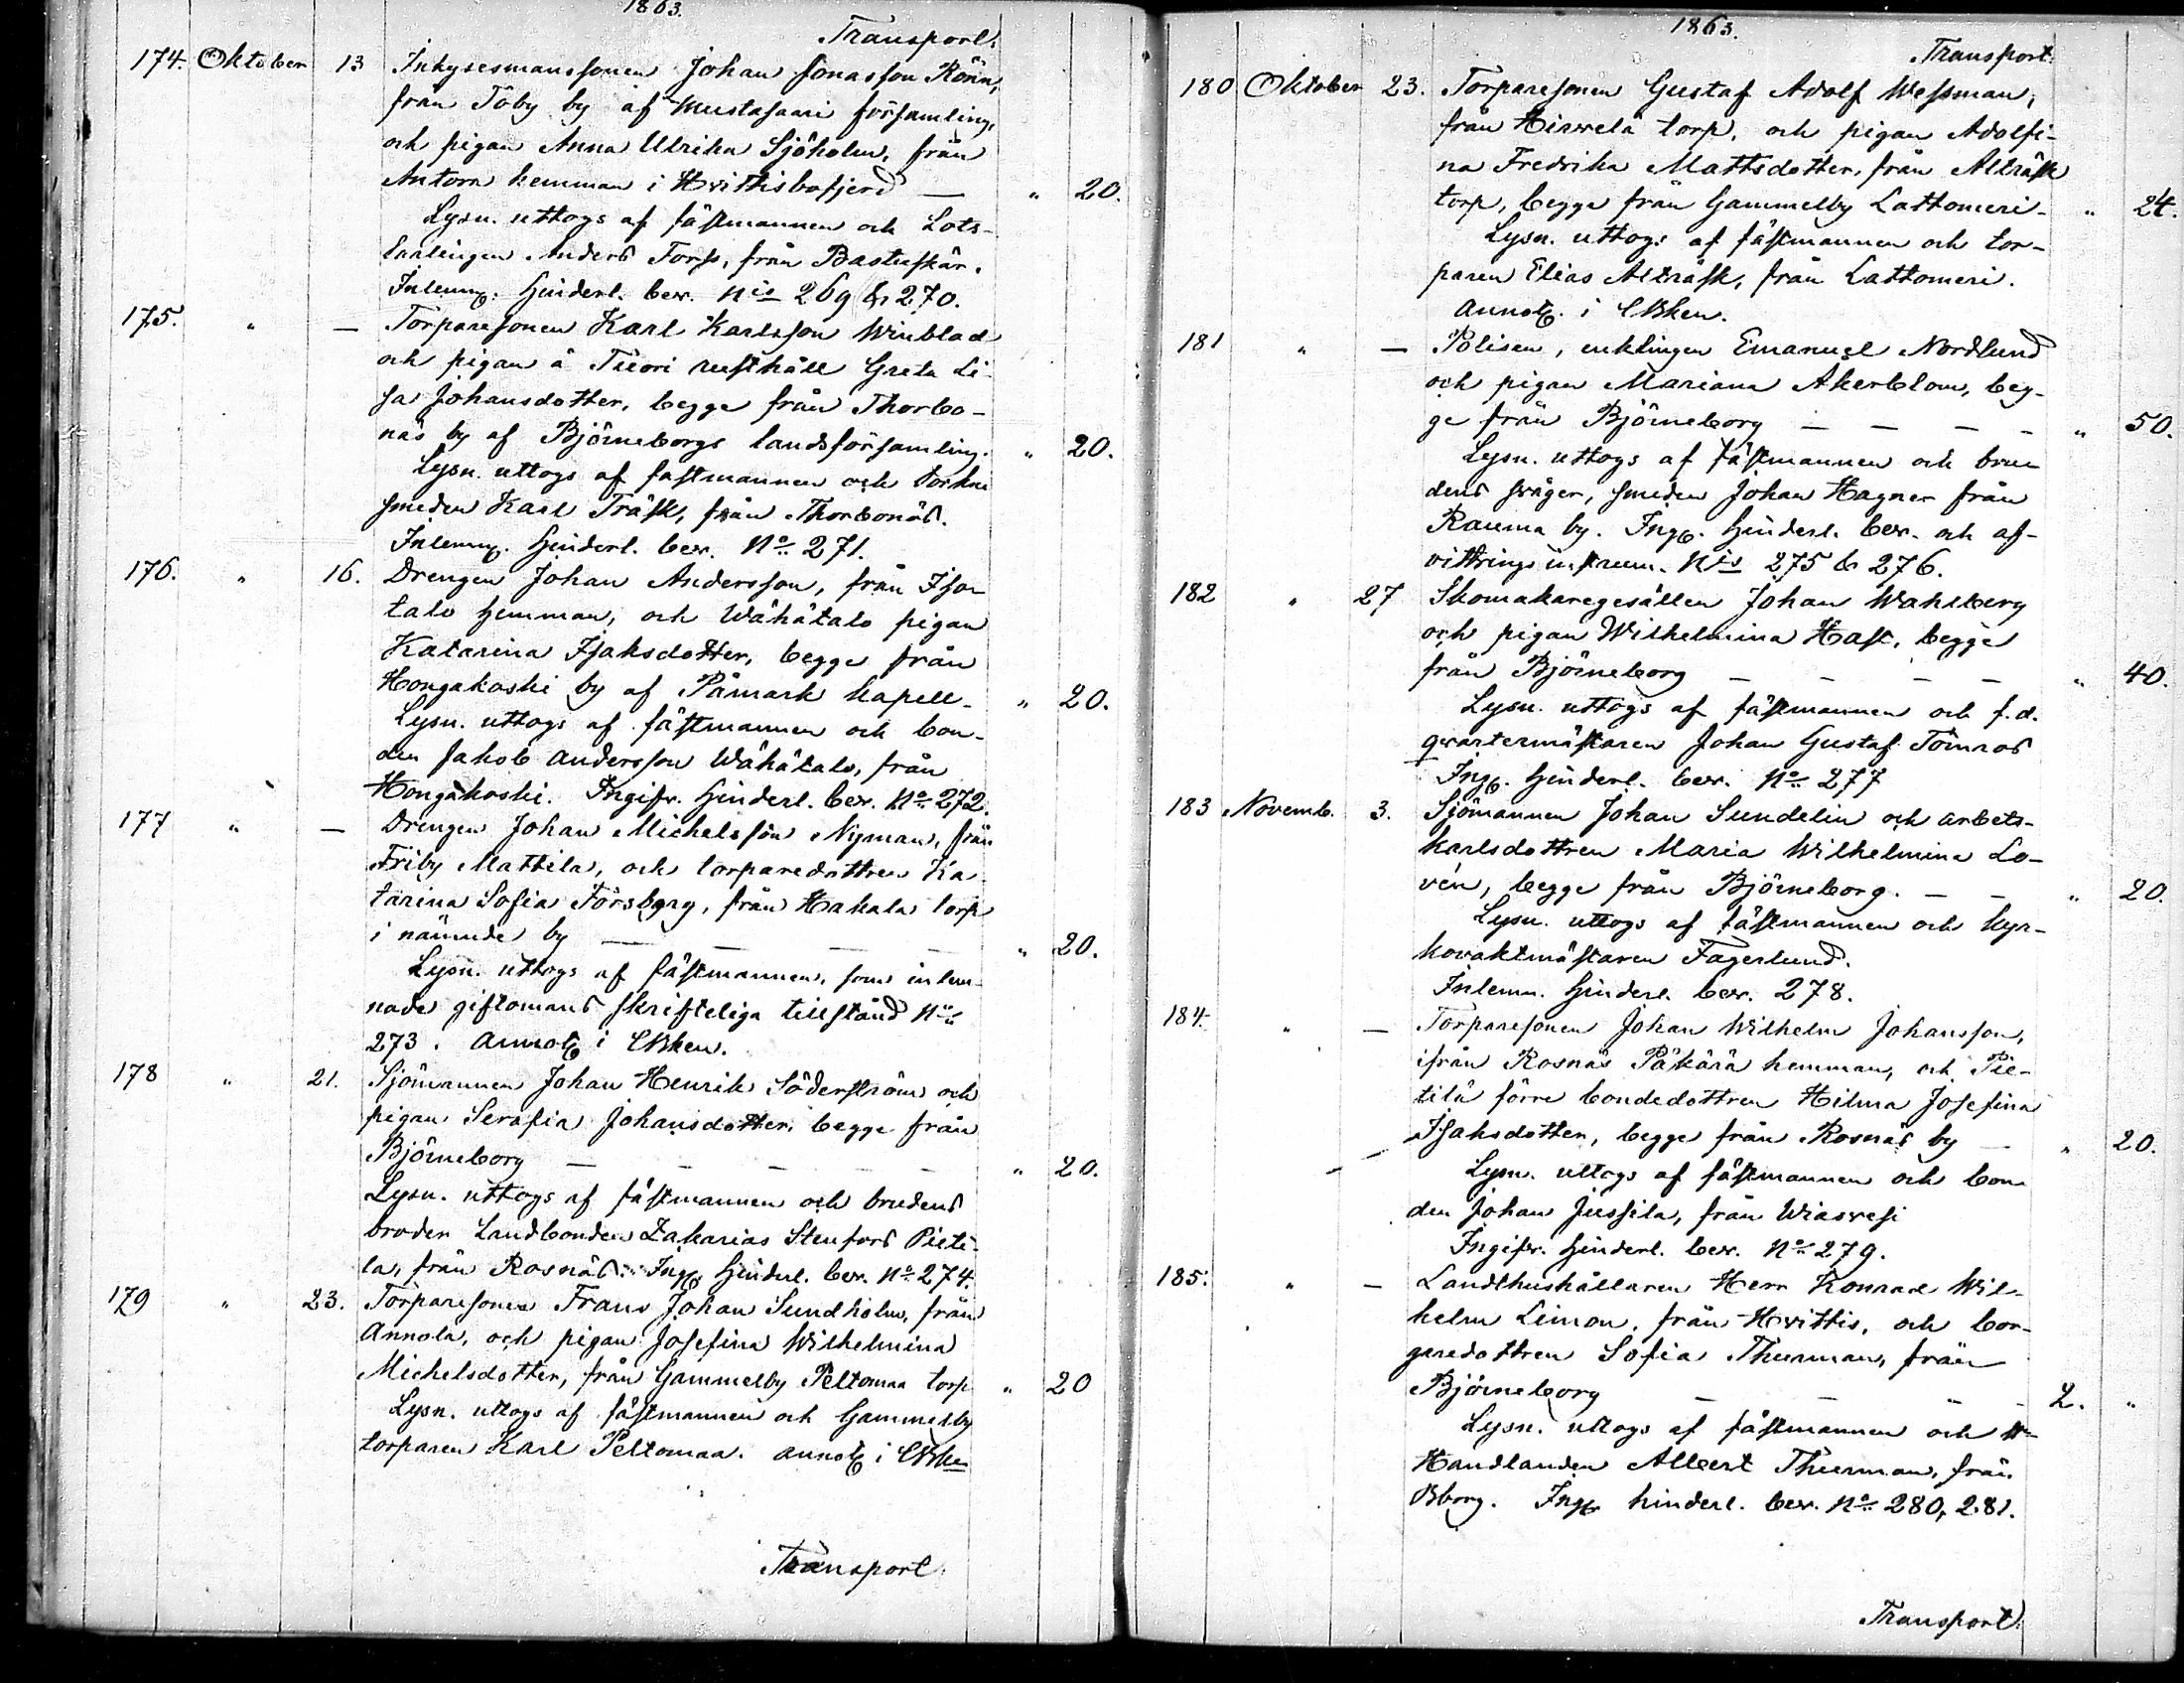 1863.
Transport.
174. Oktober 13 Inhysesmanssonen Johan Jonasson Rönn,
från Töby by af Mustasaari församling,
och pigan Anna Ulrika Sjöholm, från
Antora hemman i Hvittisbofjerd — " 20.
Lysn. uttogs af fästmannen och Lots-
lärlingen Anders Forss, från Bastuskär.
Inlemn. hinderl. bev. Nis 269 & 270.
175. " — Torparesonen Karl Karlsson Winblad
och pigan å Tiiori rusthåll Greta Li-
sa Johansdotter, begge från Thorbo-
näs by af Björneborgs landsförsamling. " 20.
Lysn. uttogs af fästmannen och sockne
smeden Karl Träsk, från Thorbonäs.
Inlemn. hinderl. bev. No 271.
176. " 16. Drengen Johan Andersson, från Iso
talo hemman, och Wähätalo pigan
Katarina Isaksdotter, begge från
Hongakoski by af Påmark kapell- " 20.
Lysn. uttogs af fästmannen och bon-
den Jakob Andersson Wähätalo, från
Hongakoski. Ingifv. hinderl. bev. No 272.
177 " — Drengen Johan Michelsson Nyman, från
Friby Mattila, och torparedottren Ka
tarina Sofia Forsberg, från Hakala torp
i nämnde by — — — — " 20.
Lysn. uttogs af fästmannen, som inlem-
nade giftomans skrifteliga tillstånd No
273. Annot. i CBken.
178 " 21. Sjömannen Johan Henrik Söderström och
pigan Serafia Johansdotter, begge från
Björneborg — — — — — " 20.
Lysn. uttogs af fästmannen och brudens
broder Landbonden Zakarias Stenfors Pieti-
la, från Rosnäs. Ing. hinderl. bev. No 274.
179 " 23. Torparesonen Frans Johan Sundholm, från
Annola, och pigan Josefina Wilhelmina
Michelsdotter, från Gammelby Peltomaa torp " 20
Lysn. uttogs af fästmannen och Gammelby
torparen Karl Peltomaa. Annot. i CBken
Transport.
1863.
Transport.
180 Oktober 23. Torparesonen Gustaf Adolf Wessman,
från Hirvelä torp, och pigan Adolfi-
na Fredrika Mattsdotter, från Alträsk
torp, begge från Gammelby Lattomeri- " 24.
Lysn. uttogs af fästmannen och tor-
paren Elias Alträsk, från Lattomeri.
Annot. i CBken.
181 " — Polisen, enklingen Emanuel Nordlund
och pigan Mariana Åkerblom, beg-
ge från Björneborg — — — — " 50.
Lysn. uttogs af fästmannen och bru
dens svåger, smeden Johan Hagner från
Rauma by. Ing. hinderl. bev. och af-
vittrings instrum. Nis 275 & 276.
182 " 27 Skomakaregesällen Johan Wahlberg
och pigan Wilhelmina Hast, begge
från Björneborg — — — — " 40.
Lysn. uttogs af fästmannen och f.d.
qvartermästaren Johan Gustaf Törnros
Ing. hinderl. bev. No 277
183 Novemb. 3. Sjömannen Johan Sundelin och arbets-
karlsdottren Maria Wilhelmina Lo-
vén, begge från Björneborg. — — " 20.
Lysn. uttogs af fästmannen och kyr-
kovaktmästaren Fagerlund.
Inlemn. hinderl. bev. 278.
184. " — Torparesonen Johan Wilhelm Johansson,
ifrån Rosnäs Päkärä hemman, och Pie-
tilä förre bondedottren Hilma Josefina
Isaksdotter, begge från Rosnäs by — " 20.
Lysn. uttogs af fästmannen och bon
den Johan Jussila, från Wiasvesi
Ingifv. hinderl. bev. No 279.
185. " — Landthushållaren Herr Konrad Wil-
helm Limon, från Hvittis, och bor-
garedottren Sofia Thurman, från
Björneborg — — — — 2. "
Lysn. uttogs af fästmannen och
Handlanden Albert Thurman, från
Bborg. Ing. hinderl. bev. No 280, 281.
Transport.